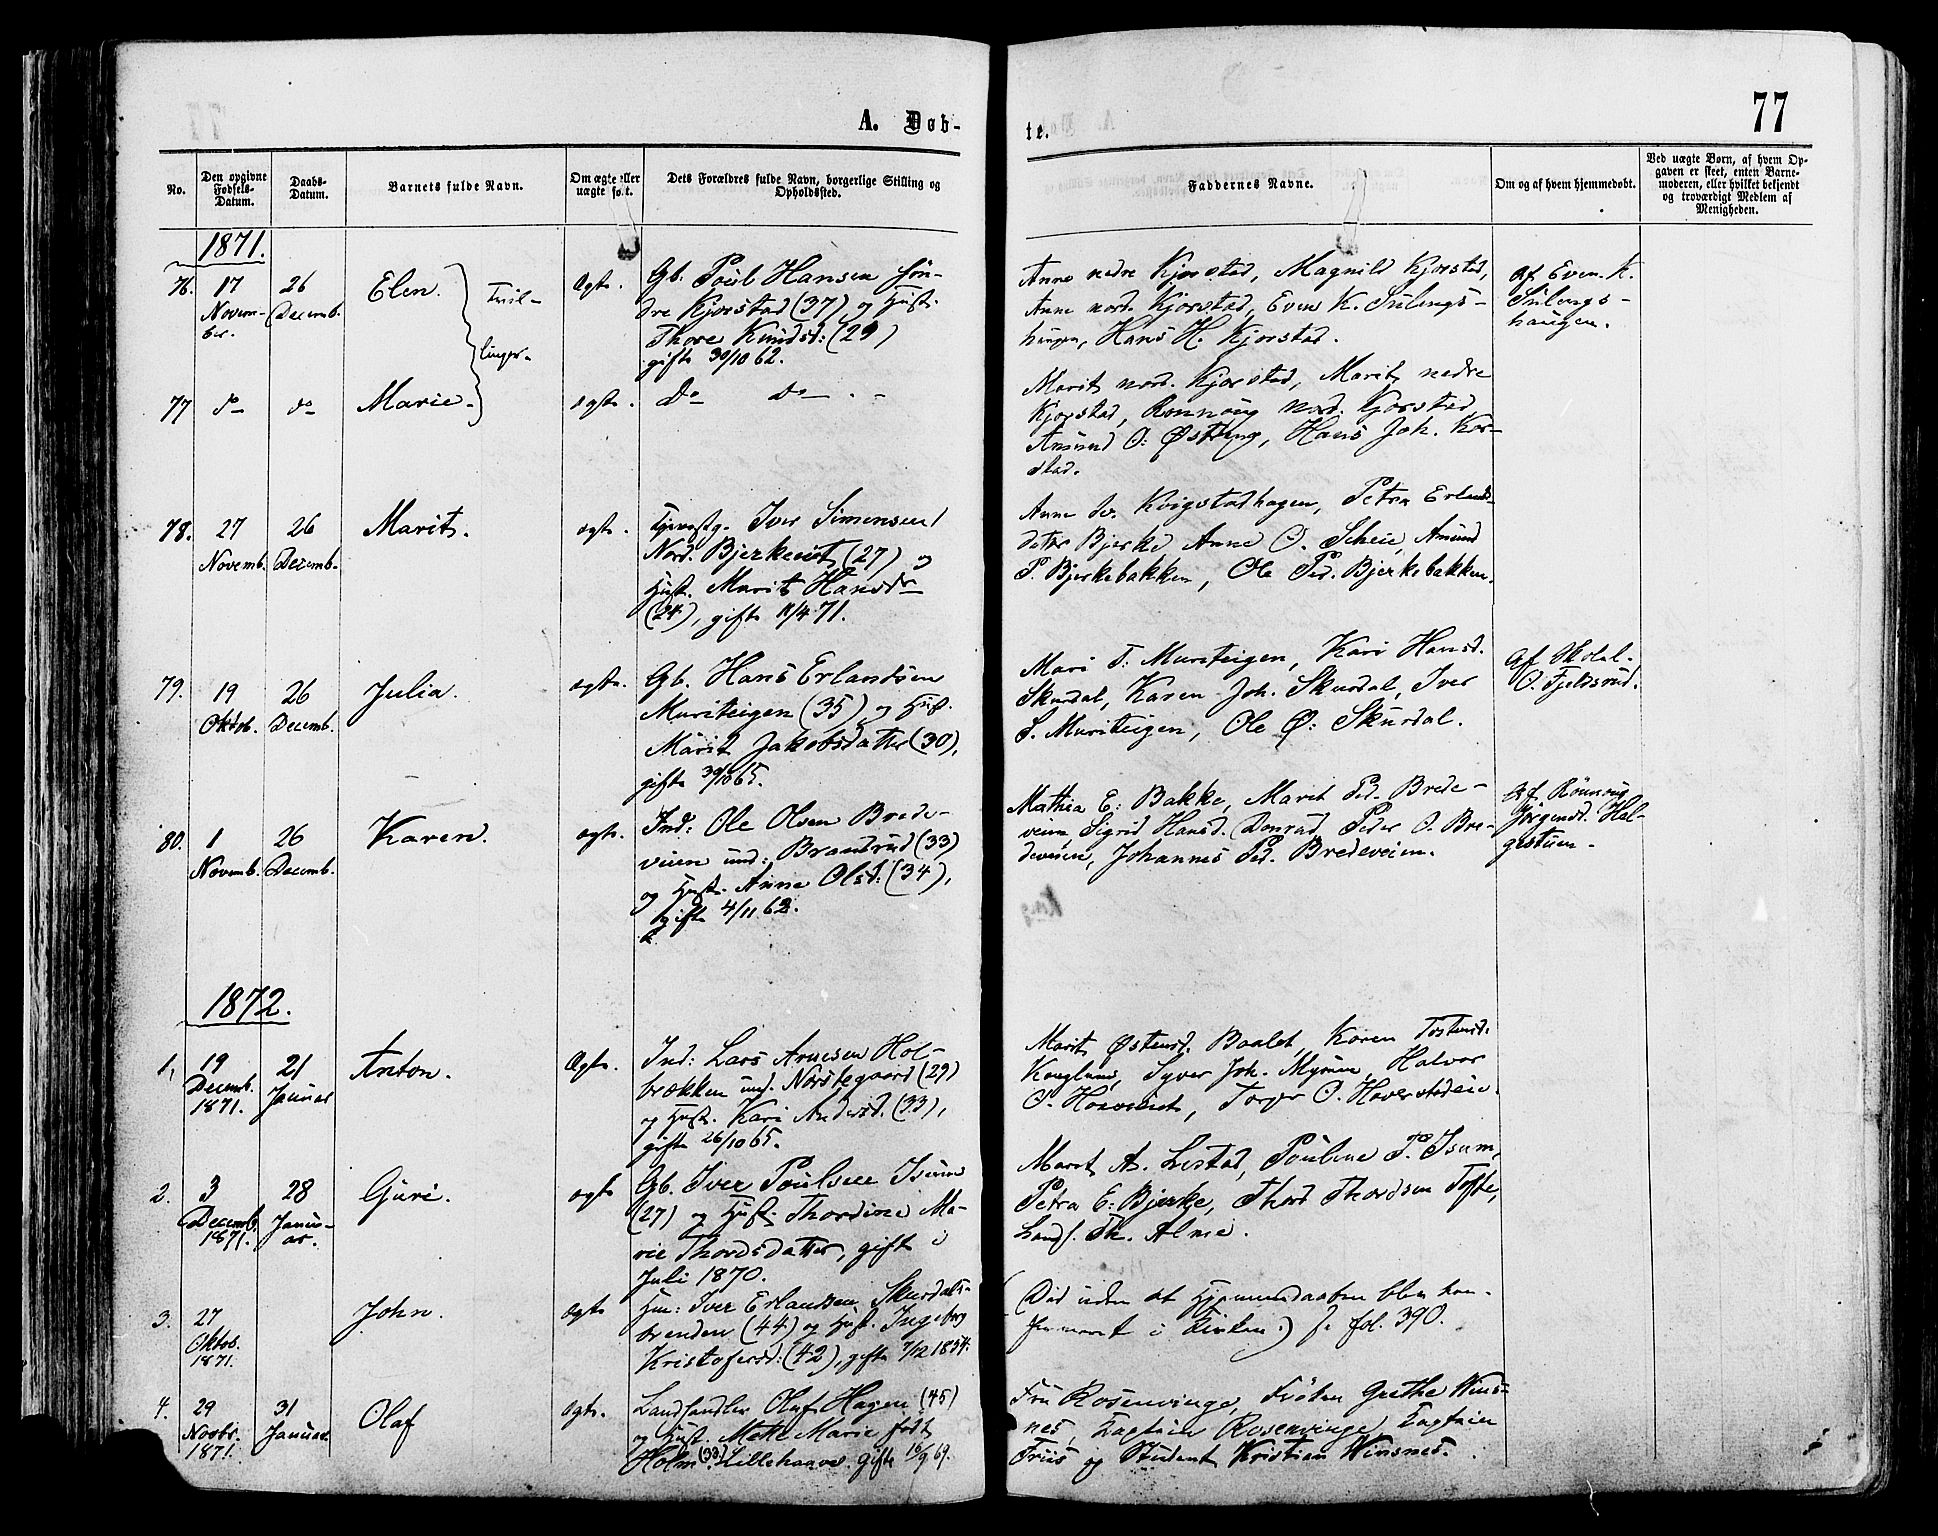 A. Døb-
te.
77
No.
Den opgivne Fødsels-Datum.
Daabs-Datum.
Barnets fulde Navn.
Om ægte eller uægte født.
Dets Forældres fulde Navn, borgerlige Stilling og Opholdssted.
Faddernes Navne.
Om og af hvem hjemmedøbt.
Ved uægte Børn, af hvem Op-
gaven er skeet, enten Barne-
moderen, eller hvilket bekjendt
og troværdigt Medlem af
Menigheden.
1871.
76. 17 Novem-ber. 26 Decemb. Elen. Tvil- ægte.
Gb. Poul Hansen søn-
dre Kjorstad (37) og Hust.
Thore Knudsd: (29)
gifte 30/10 62.
Anne nedre Kjorstad, Magnild Kjorstad,
Anne nord. Kjorstad, Even K. Sulengs-
haugen, Hans H. Kjorstad.
Af Even K.
Sulengs-
haugen.
linger
77 do do Marie. ægte. Do do
Marit nord. Kjorstad, Marit nedre
Kjorstad, Rønnoug nord. Kjorstad
Amund O: Østeng, Hans Joh. Kor-
stad.
78. 27 Novemb. 26 Decemb. Marit. ægte.
Iver Simensen
Nord. Bjerkeqvist (27) og
Hust. Marit Hansdr
(24), gifte 11/4 71.
Anne Kvigstadhagen, Petra Erlands-
datter Bjerke Anne O. Scheie, Amund
P. Bjerkebakken, Ole Ped. Bjerkebakken.
79. 19 Oktob. 26 Decemb. Julia. ægte.
Gb. Hans Erlandsen
Muriteigen (35) og Hust.
Marit Jakobsdatter (30),
gifte 30/10 65.
Mari T: Muriteigen, Kari Hansd.
Skurdal, Karen Joh. Skurdal, Iver
S. Muriteigen, Ole Ø: Skurdal.
Af
O. Fjeldsrud.
80. 1 Novemb. 26 Decemb. Karen. ægte.
Ind: Ole Olsen Brede-
veien und: Brandrud (33)
og Hust. Anne Olsd: (34),
gifte 4/11 62.
Mathia E: Bakke, Marit Ped. Brede-
veien, Sigrid Hansd. Donrud, Peder O. Bre-
deveien, Johannes Ped. Bredeveien.
Af Rønnoug
Jørgensd. Hal-
gestuen.
1872.
1, 19 Decemb. 1871. 21 Januar Anton. Ægte.
Ind: Lars Arnesen Hol-
brækken und. Norstegaard (29)
og Hust. Kari Andersd. (33),
gifte 26/10 65.
Marit Østensd. Baalet, Karen Tostensd.
Kruglund, Syver Joh. Myrum, Halvor
O. Torger O. Haverstadeie.
2. 3 Decemb. 1871. 28 Janu-ar. Guri. ægte
Gb. Iver Poulsen Isum
(27) og Hust. Thordine Ma-
rie Thordsdatter, gifte i
Juli 1870.
Marit A. Listad, Pouline P. Isum,
Petra E: Bjerke, Thord Thordsen Tofte,
Landh. Th. Alme.
3. 27 Oktob. 1871. John. ægte
Hm: Iver Erlandsen Skurdals-
brenden (44) og Hust. Ingeborg
Kristofersd: (42), gifte 7/12 1854.
(Død uden at Hjemmedaaben blev kon-
fermeret i Kirken.) se fol. 390.
4. 29 Novbr. 1871. 31 Januar. Olaf ægte.
Landhandler Oluf Hagen (45)
og Hust. Mette Marie født
Holm (33) Lillehammer. gifte 16/9 69.
Fru Rosenvinge, Frøken Grethe Wins-
nes, Kaptein Rosenvinge, Kaptein
Friis og Student Kristian Winsnes.